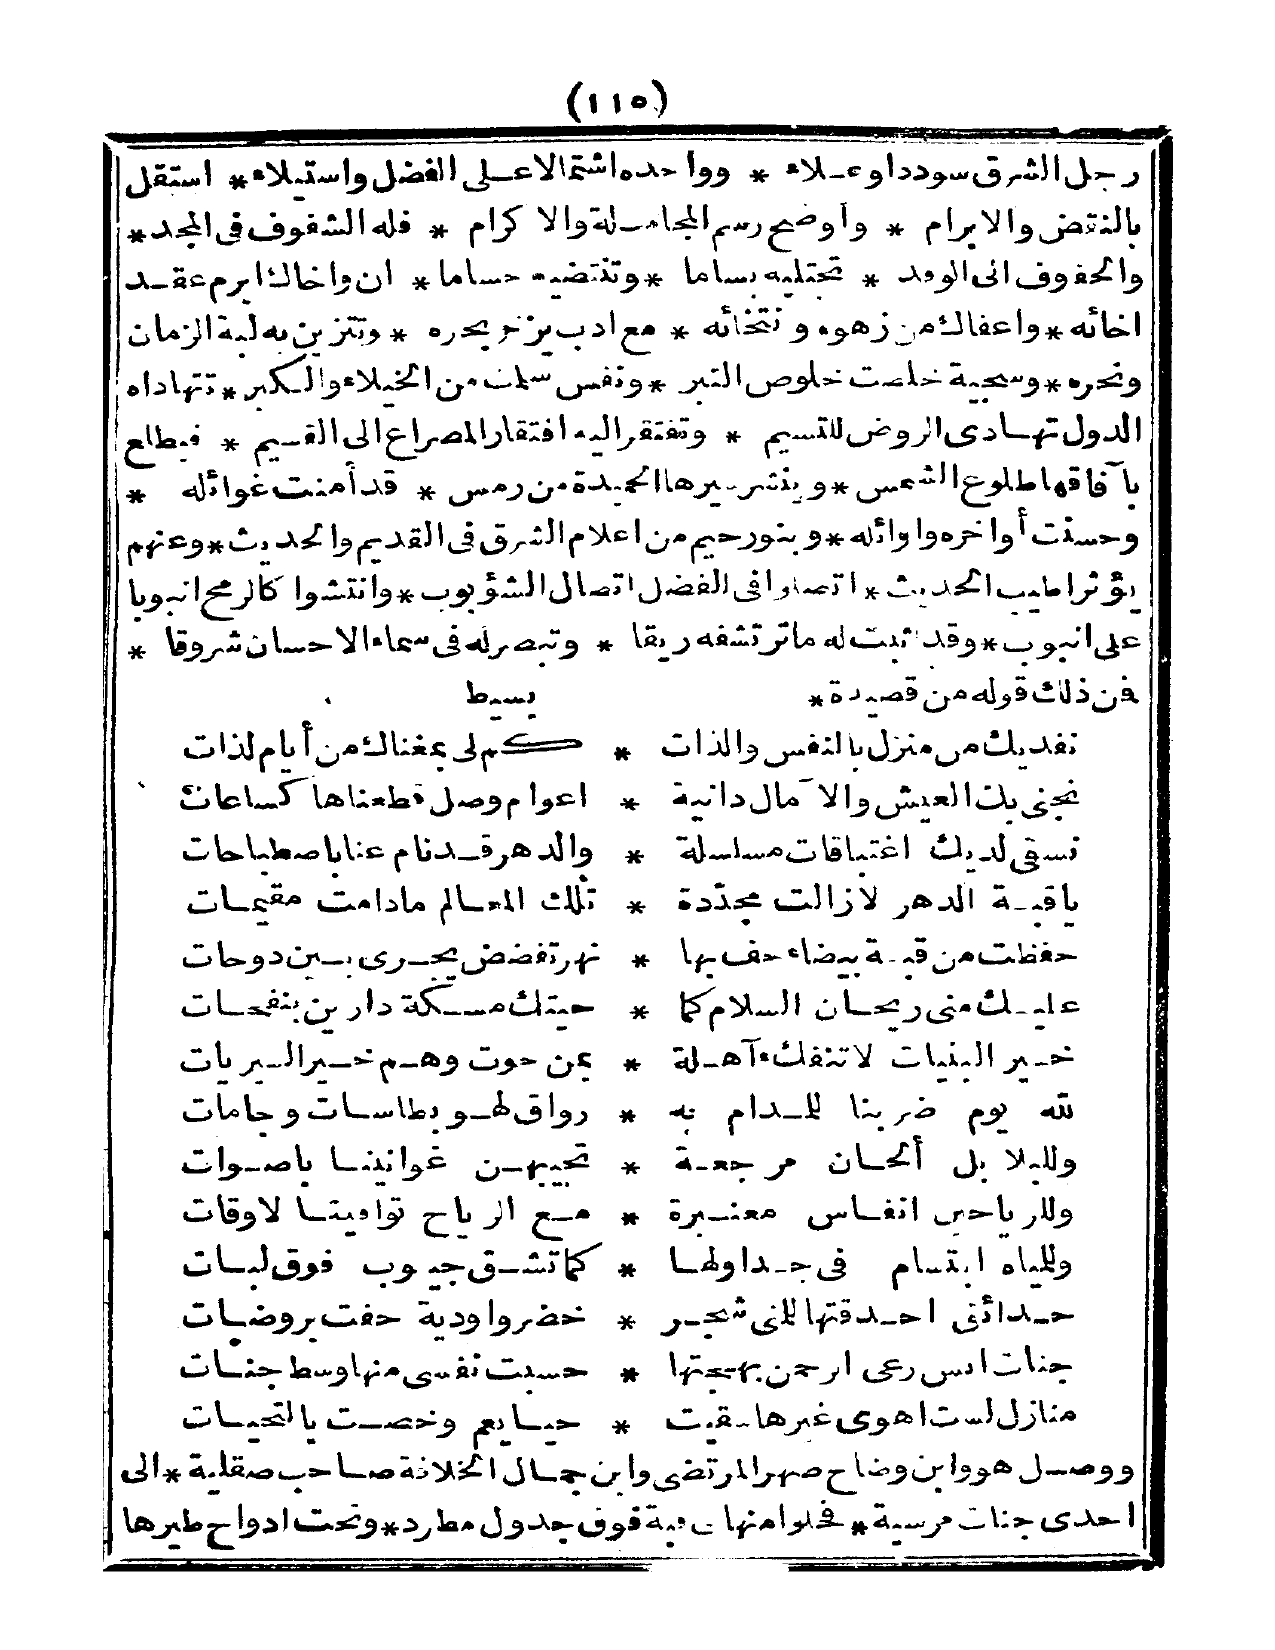 (١١٥)
رجل الشرق سوددا وعلاء * وواحده اشتمالا على الفضل واستيلاء * استقل
بالنقض والابرام * وأوضح رسم المجاملة والاكرام * فله الشفوف فى المجد *
والحفوف الى الوفد * تجتليه بساما * وتنتضيه حساما * ان واخاك ابرم عقد
اخائه * واعفاك من زهوه وانتخائه * مع ادب يزخر بحره * وتتزين به لبة الزمان
ونحره * وسجية خلصت خلوص التبر * ونفس سلمت من الخيلاء والكبر * تتهاداه
الدول تهادى الروض للنسيم * وتفتقر اليه افتقار المصراع الى القسيم * فيطلع
بآفاقها طلوع الشمس * وينشر سيرها الحميدة من رمس * قد أمنت غوائله *
وحسنت أواخره وأوائله * وبنو رحيم من اعلام الشرق فى القديم والحديث * وعنهم
يؤثر اطيب الحديث * اتصلوا فى الفضل اتصال الشؤبوب * وانتشوا كالرمح انبوبا
على انبوب * وقد اثبت له ما ترتشفه ريقا * وتبصر له فى سماء الاحسان شروقا *
فمن ذلك قوله من قصيدة * بسيط
نفديك من منزل بالنفس والذات * كم لى بمغناك من أيام لذات
نجنى بك العيش والآمال دانية * اعوام وصل قطعناها كساعات
نسقى لديك اغتباقات مسلسلة * والدهر قد نام عنا باصطباحات
ياقبة الدهر لازالت مجددة * تلك المعالم مادامت مقيمات
حفظت من قبة بيضاء حف بها * نهر تفضض يجرى بين دوحات
عليك منى ريحان السلام كما * حيتك مسكة دارين بنفحات
خير البنيات لا تنفك آهلة * عن حوت وهم خير البريات
لله يوم ضربنا للمدام به * رواق لهو بطاسات وجامات
وللبلابل ألحان مرجعة * تجيبهن غوانينا باصوات
وللرياحين انفاس معنبرة * مع الرياح توافينا لاوقات
وللمياه ابتسام فى جداولها * كما تشق جيوب فوق لبات
حدائق احدقتها للمنى شجر * خضر واودية حفت بروضات
جنات انس رعى الرحمن بهجتها * حسبت نفسى منها وسط جنات
منازل لست اهوى غيرها سقيت * حيا يعم وخصت بالتحيات
ووصل هو وابن وضاح صهر المرتضى وابن جمال الخلافة صاحب صقلية * الى
احدى جنات مرسية * فحلوا منها فى قبة فوق جدول مطرد * وتحت ادواح طيرها